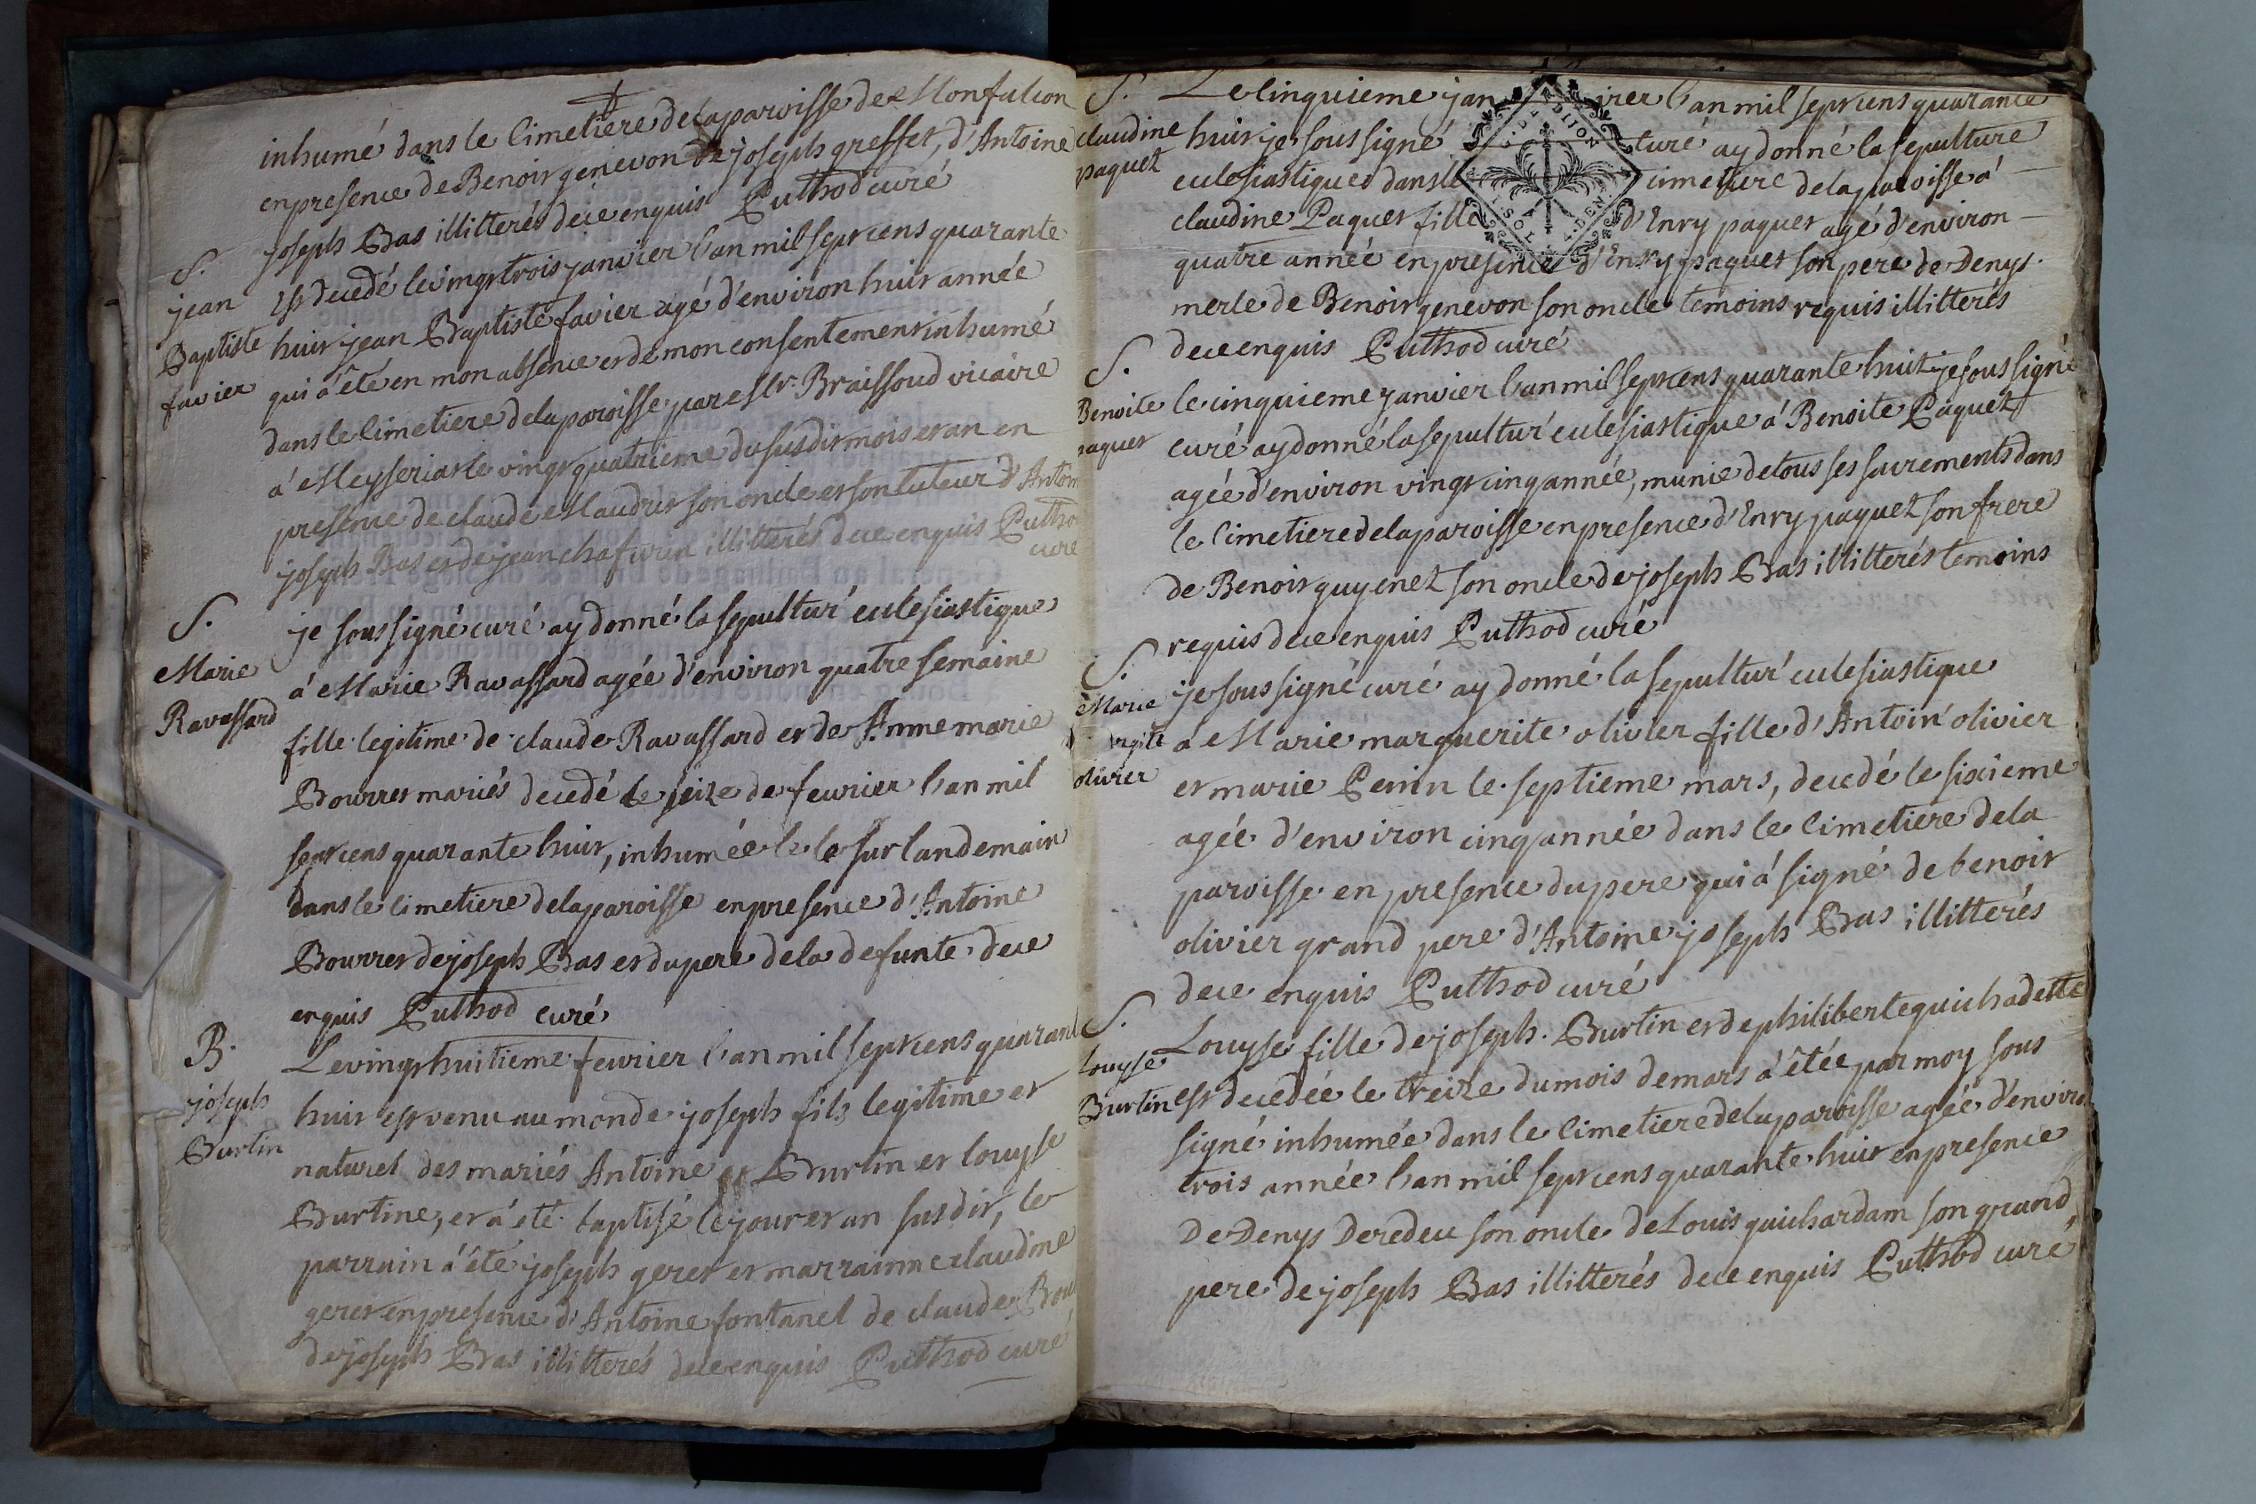 inhumé dans le Cimetiere delaparoisse de Monfalcon
enpresence de Benoir genevon de joseph greffet, d'Antoine
joseph Bas illitterés dece enquis Puthod curé
S.
jean
Baptiste
favier
Est decedé levingrtrois janvier l'an mil septcens quarante
huir jean Baptiste favier agé d'environ huir année
qui à été en mon absence et de mon consentement inhumé
dans le Cimetiere delaparoisse par Mr. Braissoud vicaire
á Meysseriat le vingt quatrieme du susdit mois et an en
presence de claude Maudris son oncle et son tuteur d'Antoin
joseph Bas et de jean chafurin illitterés dece enquis Puthod
curé
S.
Marie
Ravassard
je soussigné curé ay donné la sepultur' eclesiastique
á Marie Ravassard agée d'environ quatre semaine
fille legitime de claude Ravassard et de Anne marie
Bourret mariés decedé le seize de fevrier l'an mil
septcens quarante huir, inhumée le le surlandemain
dans le cimetiere delaparoisse enpresence d'Antoine
Bourret de joseph Bas et du pere dela defunte dece
enquis Puthod curé
B.
joseph
Burtin
Levingt huitieme fevrier l'an mil septcens quarant
huir est venu au monde joseph fils legitime et
naturel des mariés Antoine Burtin et louyse
Burtine, et á eté baptisé le jour et an susdit, le
parrain á été joseph geret et marrainne claudine
geret enpresence d'Antoine fontanel de claude Bou
de joseph Bas illitterés dece enquis Puthod curé
S.
claudine
paquet
Le Cinquieme janvier l'an mil septcens quarante
huir je soussigné curé ay donné la sepulture
eclesiastique dans le cimetiere delaparoisse á
claudine Paquet fille d'Enry paquet agé d'environ
quatre année en presence d'Enry paquet son pere de Denys
merle de Benoir genevon son oncle temoins requis illitterés
dece enquis Puthod curé
S.
Benoite
paquet
le cinquieme janvier l'an mil septcens quarante huit je soussigné
curé ay donné la sepultur' eclesiastique á Benoite Paquet
agée d'environ vingt cinq année, munie de tous ses sacrements dans
le Cimetiere delaparoisse en presence d'Enry paquet son frere
de Benoit guyenet son oncle de joseph Bas illitterés temoins
requis dece enquis Puthod curé
S.
Marie
olivier
je soussigné curé ay donné la sepultur' eclesiastique
á Marie marguerite olivier fille d'Antoin' olivier
et marie Penin le septieme mars, decedé le sixieme
agée d'environ cinq année dans le Cimetiere dela
paroisse en presence du pere qui á signé de benoit
olivier grand pere d'Antoine joseph Bas illitterés
dece enquis Puthod curé
S.
Louyse
Burtin
Louyse fille de joseph Burtin et de philiberte guichadette
est decedée le treize du mois de mars á êtée par moy sous
signé inhumée dans le Cimetiere delaparoisse agée d'enviro
trois année l'an mil septcens quarante huir en presence
De Denys Deredeu son oncle de Louis guichardam son grand
pere de joseph Bas illitterés dece enquis Puthod curé